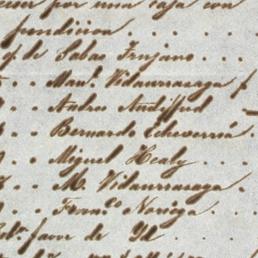 por una caja con
fundicion . . . .
y de Salas Trujano . . .
Man.l Vidaurrazaga y
" . Andres Audiffred
" . Bernardo Echeverria .
" . Miguel Healy . . . .
" . M. Vidaurrazaga .
" . Fran.co Noriega . . .
favor de Yd . . . .